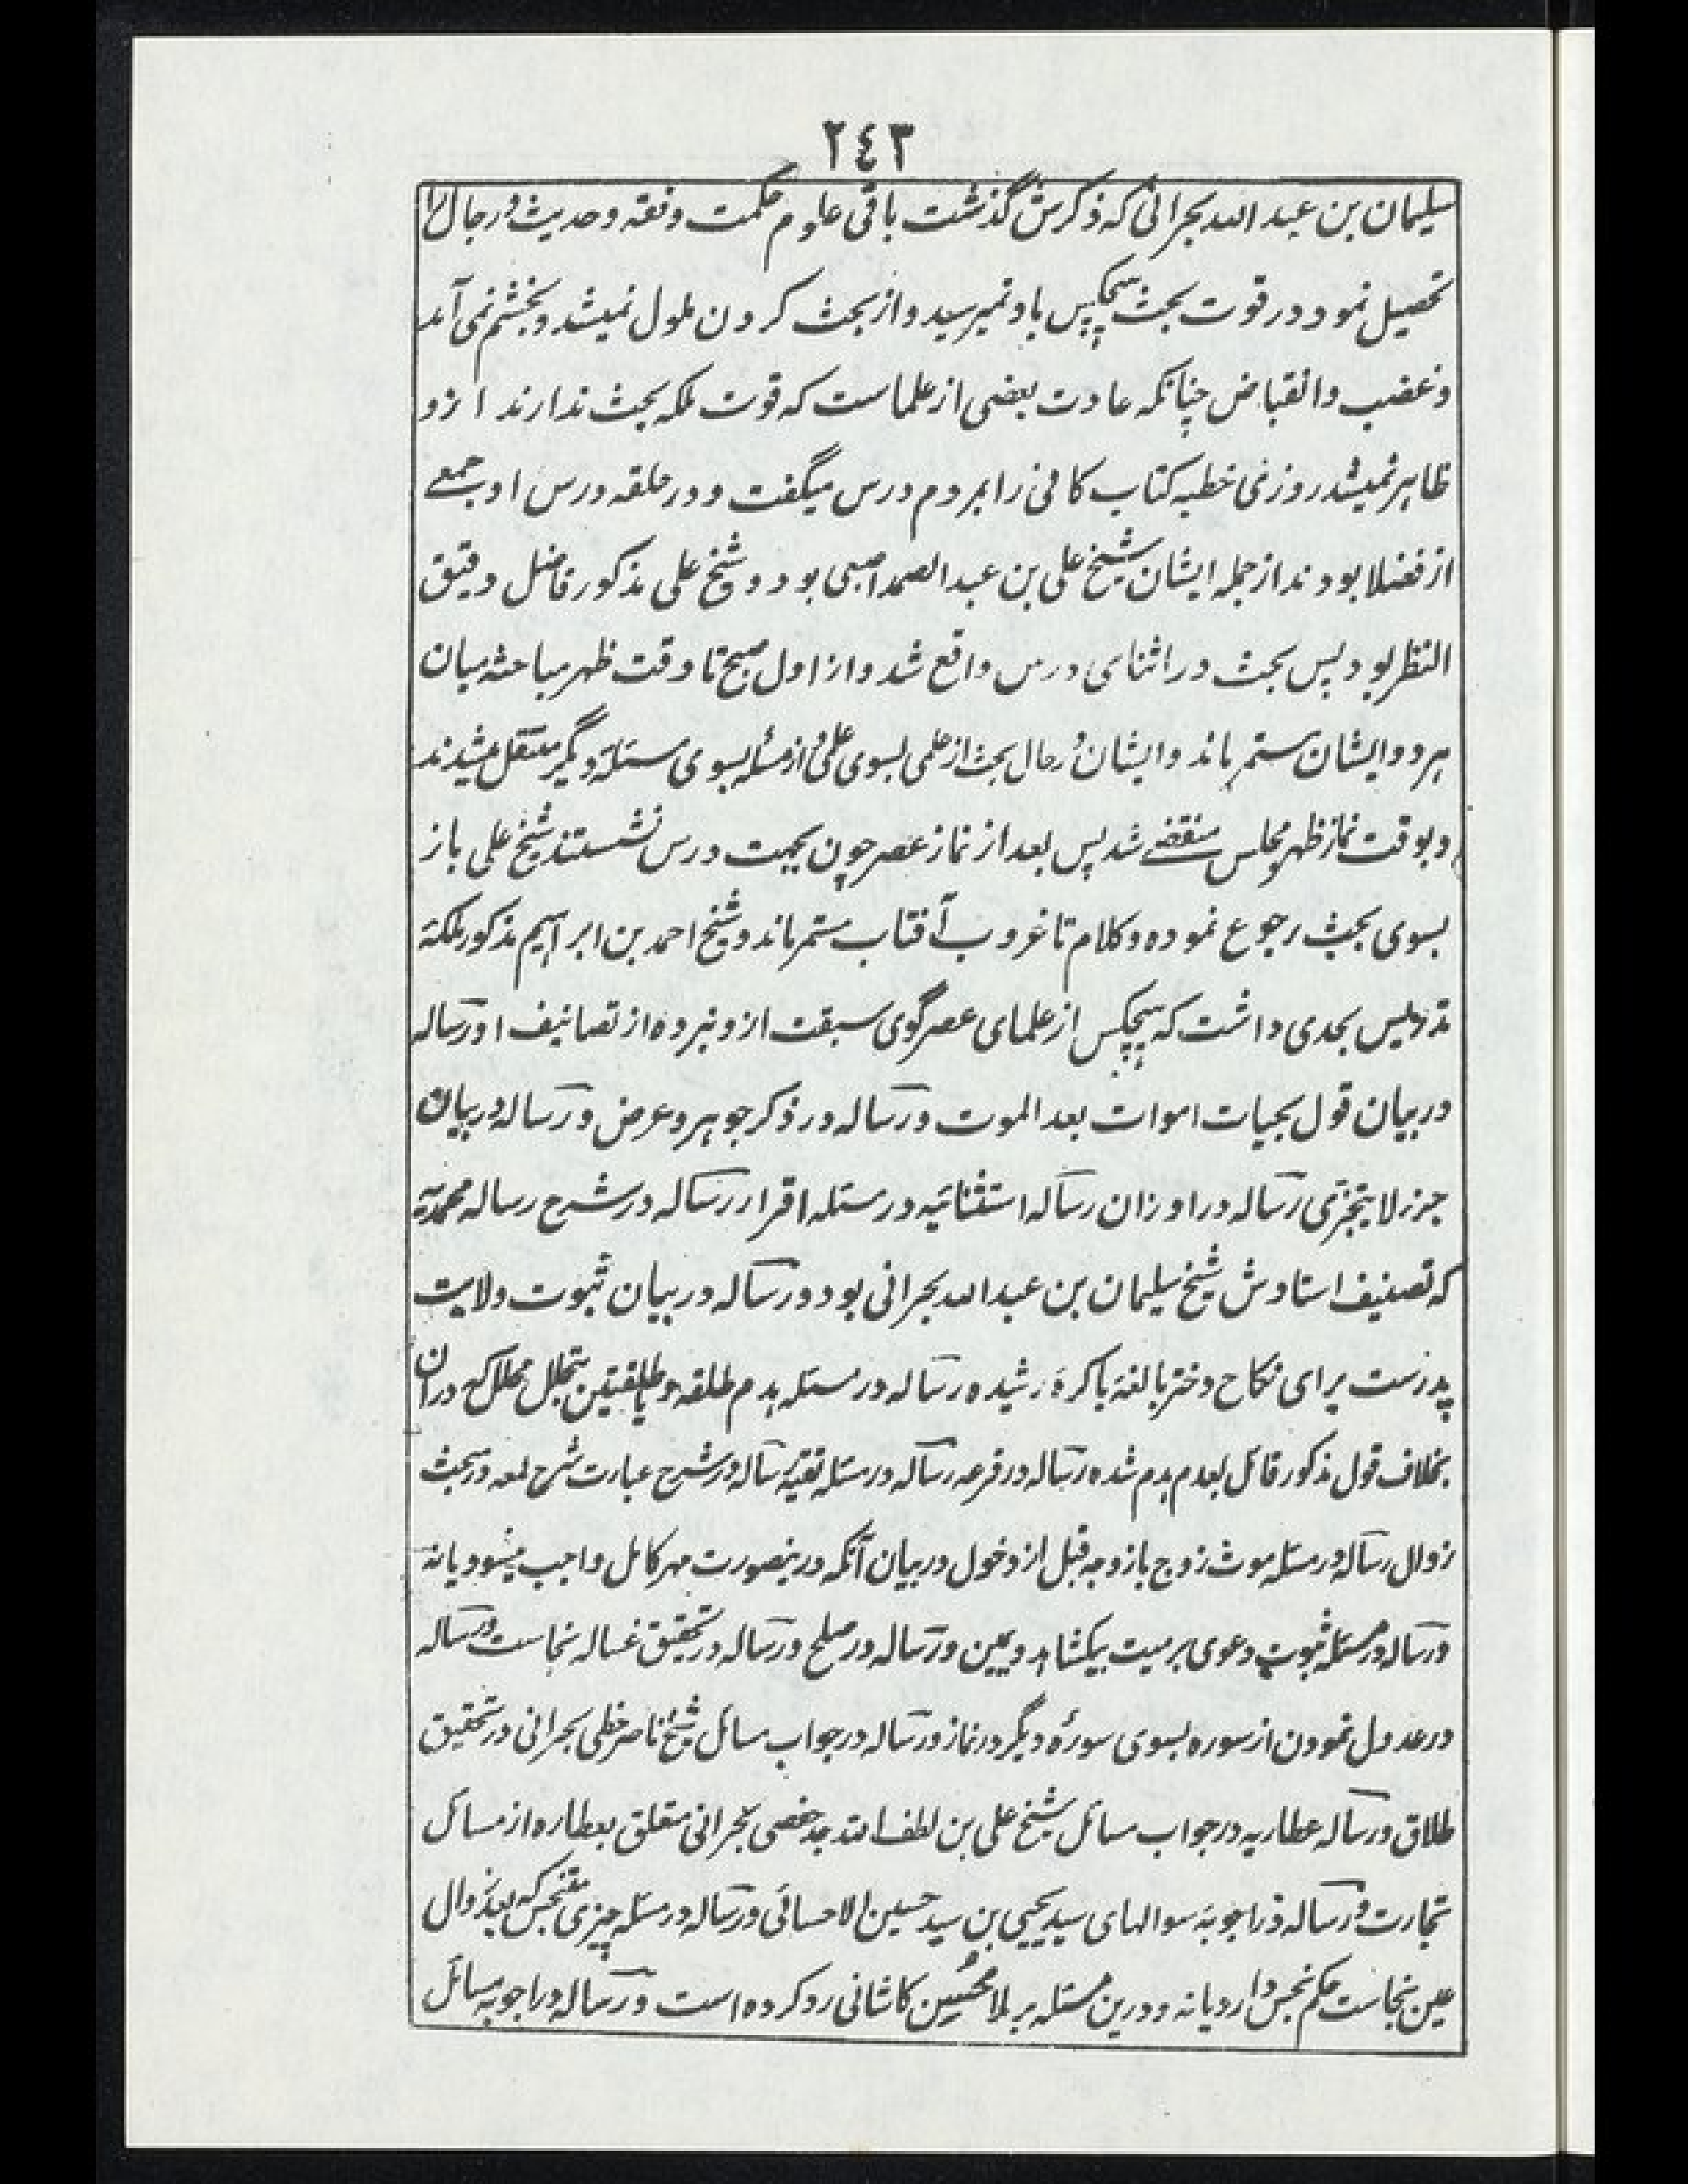 ٢٤٣
سلیمان بن عبد الله بحرانی که ذکرش گذشت باقی علوم حکمت و فقه و حدیث و رجال را
تحصیل نمود در قوت بحث هیچکس باو نمیرسید و از بحث کردن ملول نمیشد و بخشم نمی آمد
و غضب و انقباض چنانکه عادت بعضی از علماست که قوت ملکه بحث ندارند ازو
ظاهر نمیشد روزی خطبه کتاب کافی را بمردم درس میگفت و در حلقه درس او جمعے
از فضلا بودند از جمله ایشان شیخ علی بن عبد الصمد اصبعی بود و شیخ علی مذکور فاضل دقیق
النظر بود پس بحث در اثنای درس واقع شد و از اول صبح تا وقت ظهر مباحثه میان
هر دو ایشان مستمر ماند و ایشان در حال بحث از علمی بسوی علمی و از مسئله بسوی مسئلهٔ دیگر منتقل میشدند
و بوقت نماز ظهر مجلس منقضے شد پس بعد از نماز عصر چون بجهت درس نشستند شیخ علی باز
بسوی بحث رجوع نموده و کلام تا غروب آفتاب مستمر ماند و شیخ احمد بن ابراهیم مذکور ملکهٔ
تدریس بحدی داشت که هیچکس از علمای عصر گوی سبقت ازو نبرده از تصانیف او رساله
در بیان قول بحیات اموات بعد الموت و رساله در ذکر جوهر و عرض و رساله در بیان
جزء لا یتجزی رساله در اوزان رساله استثنائیه در مسئله اقرار رساله در شرح رساله محمدیه
که تصنیف استادش شیخ سلیمان بن عبد الله بحرانی بود و رساله در بیان ثبوت ولایت
پدرست برای نکاح دختر بالغهٔ باکرهٔ رشیده رساله در مسئله هدم طلقه و طلقتین بتحلل محلل که دران
بخلاف قول مذکور قائل بعدم هدم شده رساله در قرعه رساله در مسئله تقیه رساله در شرح عبارت شرح لمعه در بحث
زوال رساله در مسئله موت زوج یا زوجه قبل از دخول در بیان آنکه درینصورت مهر کامل واجب میشود یا نه
و رساله در مسئله ثبوت دعوی بر میت بیکشاهد و یمین و رساله در صلح و رساله در تحقیق غساله نجاست و رساله
در عدول نمودن از سوره بسوی سورهٔ دیگر در نماز و رساله در جواب مسائل شیخ ناصر خطی بحرانی در تحقیق
طلاق و رساله عطاریه در جواب مسائل شیخ علی بن لطف الله جدحفصی بحرانی متعلق بعطاره از مسائل
تجارت و رساله در اجوبهٔ سوالهای سید یحیی بن سید حسین الاحسائی و رساله در مسئله چیزی متنجس که بعد زوال
عین نجاست حکم نجس دارد یا نه و درین مسئله بر ملا محسن کاشانی رد کرده است و رساله در اجوبه مسائل